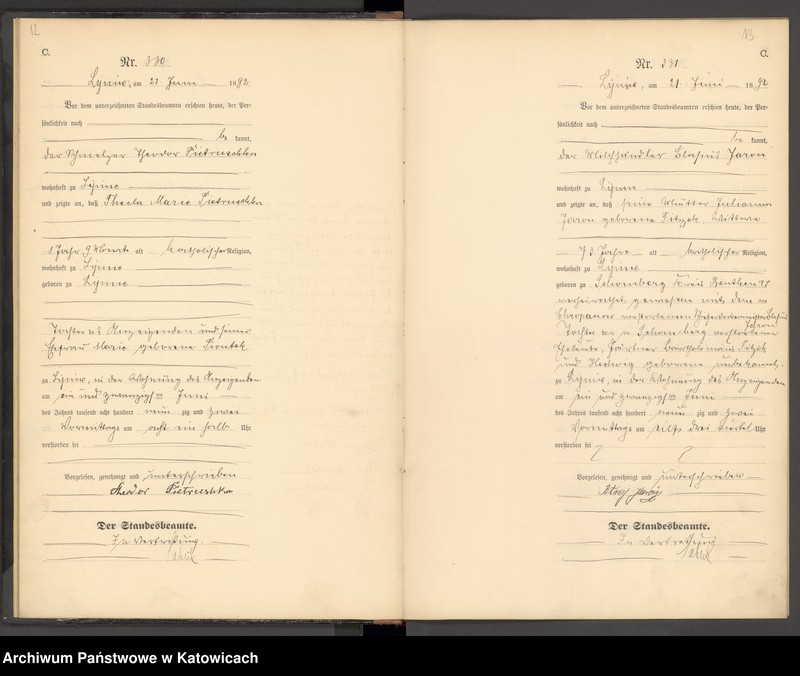 12
C.
Nr. 380.
am 21. Juni 1892.
Vor dem unterzeichneten Standesbeamten erschien heute, der Per-
sönlichkeit nach
be kannt,
der Schmelzer Theodor Pietruschka
wohnhaft zu
und zeigte an, daß Thecla Marie Pietruschka
1 Jahr 9 Monate alt katholischer Religion,
wohnhaft zu
geboren zu
Tochter des Anzeigenden und seiner
Ehefrau Marie geborene
zu in der Wohnung des Anzeigenden
am ein und zwanzigsten Juni
des Jahres tausend acht hundert neun zig und zwei
Vormittags um acht ein halb Uhr
verstorben sei
Vorgelesen, genehmigt und unterschrieben
Theodor Pietruschka
Der Standesbeamte.
In Vertretung.
13
C.
Nr. 381.
am 21. Juni 1892
Vor dem unterzeichneten Standesbeamten erschien heute, der Per-
sönlichkeit nach
be kannt,
der Milchhändler Blasius Jaron
wohnhaft zu
und zeigte an, daß seine Mutter Julianna
Jaron geborene Wittwe
73 Jahre alt katholischer Religion,
wohnhaft zu
geboren zu Schomberg Kreis Beuthen
verheirathet gewesen mit dem zu
verstorbenen Blasius
Jaron
Tochter der zu Schomberg verstorbenen
Eheleute, Gärtner Bartholomäus
und Hedwig geborene unbekannt.
zu in der Wohnung des Anzeigenden
am ein und zwanzigsten Juni
des Jahres tausend acht hundert neun zig und zwei
Vormittags um elf drei viertel Uhr
verstorben sei
Vorgelesen, genehmigt und unterschrieben
Der Standesbeamte.
In Vertretung
Archiwum Państwowe w Katowicach